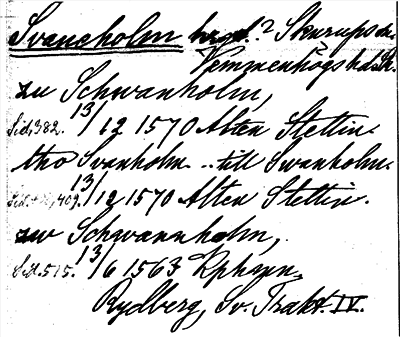 Svaneholm hrgd.? Skurups sn.
Vemmenhögs hd. Sk.
zu Schwanholm,
Sid. 382. 13/12 1570 Alten Stettin.
tho Svanholm. .. till Swanholm.
Sid. 409. 13/12 1570 Alten Stettin.
zw Schwannholm,
Sid. 515. 13/6 1563 Kphmn,
Rydberg, Sv. Trakt. IV.